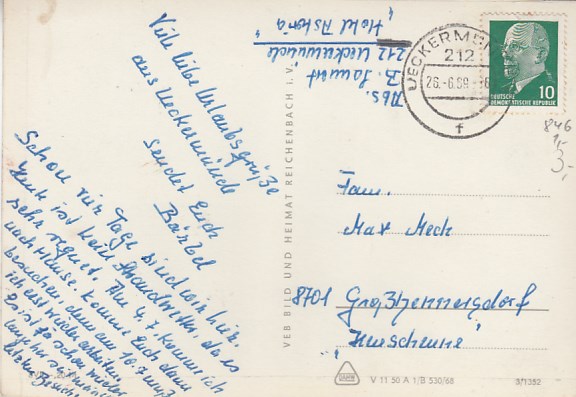 Viele liebe Urlaubsgrüße
aus Ueckermünde
sendet Euch
Bärbel
Schon vier Tage sind wir hier.
Heute ist kein Strandwetter, da es
sehr regnet. Am 4.7. komme ich
nach Hause. Komme Euch dann
besuchen, denn am 10.7. muß
ich erst wieder arbeiten.
Abs.
B.
212 Ueckermünde
Hotel Astoria
UECKERMÜNDE
212
26.-6.69
f
DEUTSCHE
DEMOKRATISCHE REPUBLIK
10
846
3,-
Fam.
Max Mech
8701 Großhennersdorf
VEB BILD UND HEIMAT REICHENBACH I. V.
V 11 50 A 1/B 530/68
3/1352